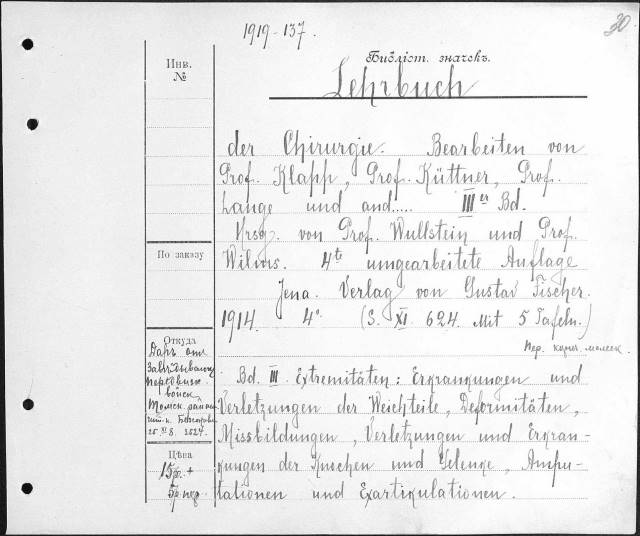 1919-137.
30
Библіот. значекъ.
Инв.
№
Lehrbuch
der Chirurgie. Bearbeiten von
Prof. Klapp, Prof. Küttner, Prof.
Lange und and..... III er Bd.
Hrsg. von Prof. Wullstein und Prof.
Wilms. 4te umgearbeitete Auflage
По заказу
Jena. Verlag von Gustav Fischer.
1914. 4°. (S. XI. 624. Mit 5 Tafeln.)
Пер.
Откуда
Даръ отъ
войск
Bd. III. Extremitäten: Erkrankungen und
Verletzungen der Weichteile, Deformitäten,
Missbildungen, Verletzungen und Erkran-
kungen der Knochen und Gelenke, Ampu-
tationen und Exartikulationen.
Цѣна
15 р. +
5 р. пер.